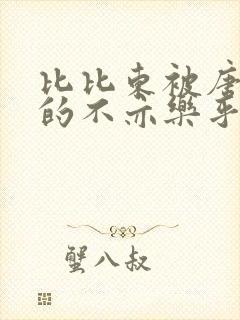 比比东被唐
的不亦樂乎
蟹八叔